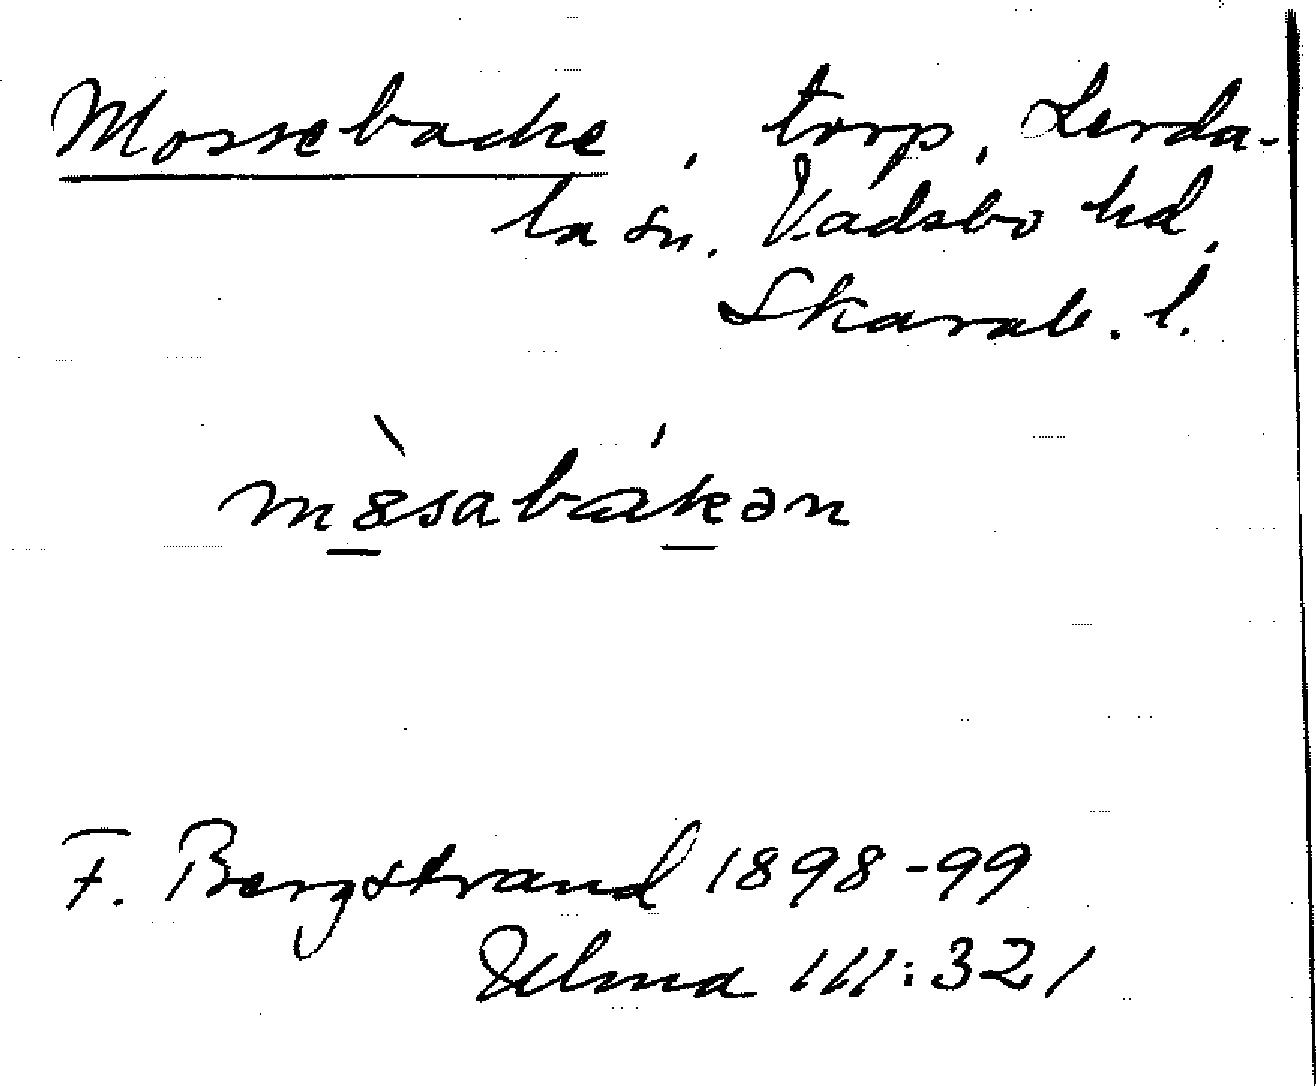 Mossebacke, torp, Lerda-
la sn. Vadsbo hd,
Skarab. l.
m8̀sabákən
F. Bergstrand 1898-99
Ulma 111:321